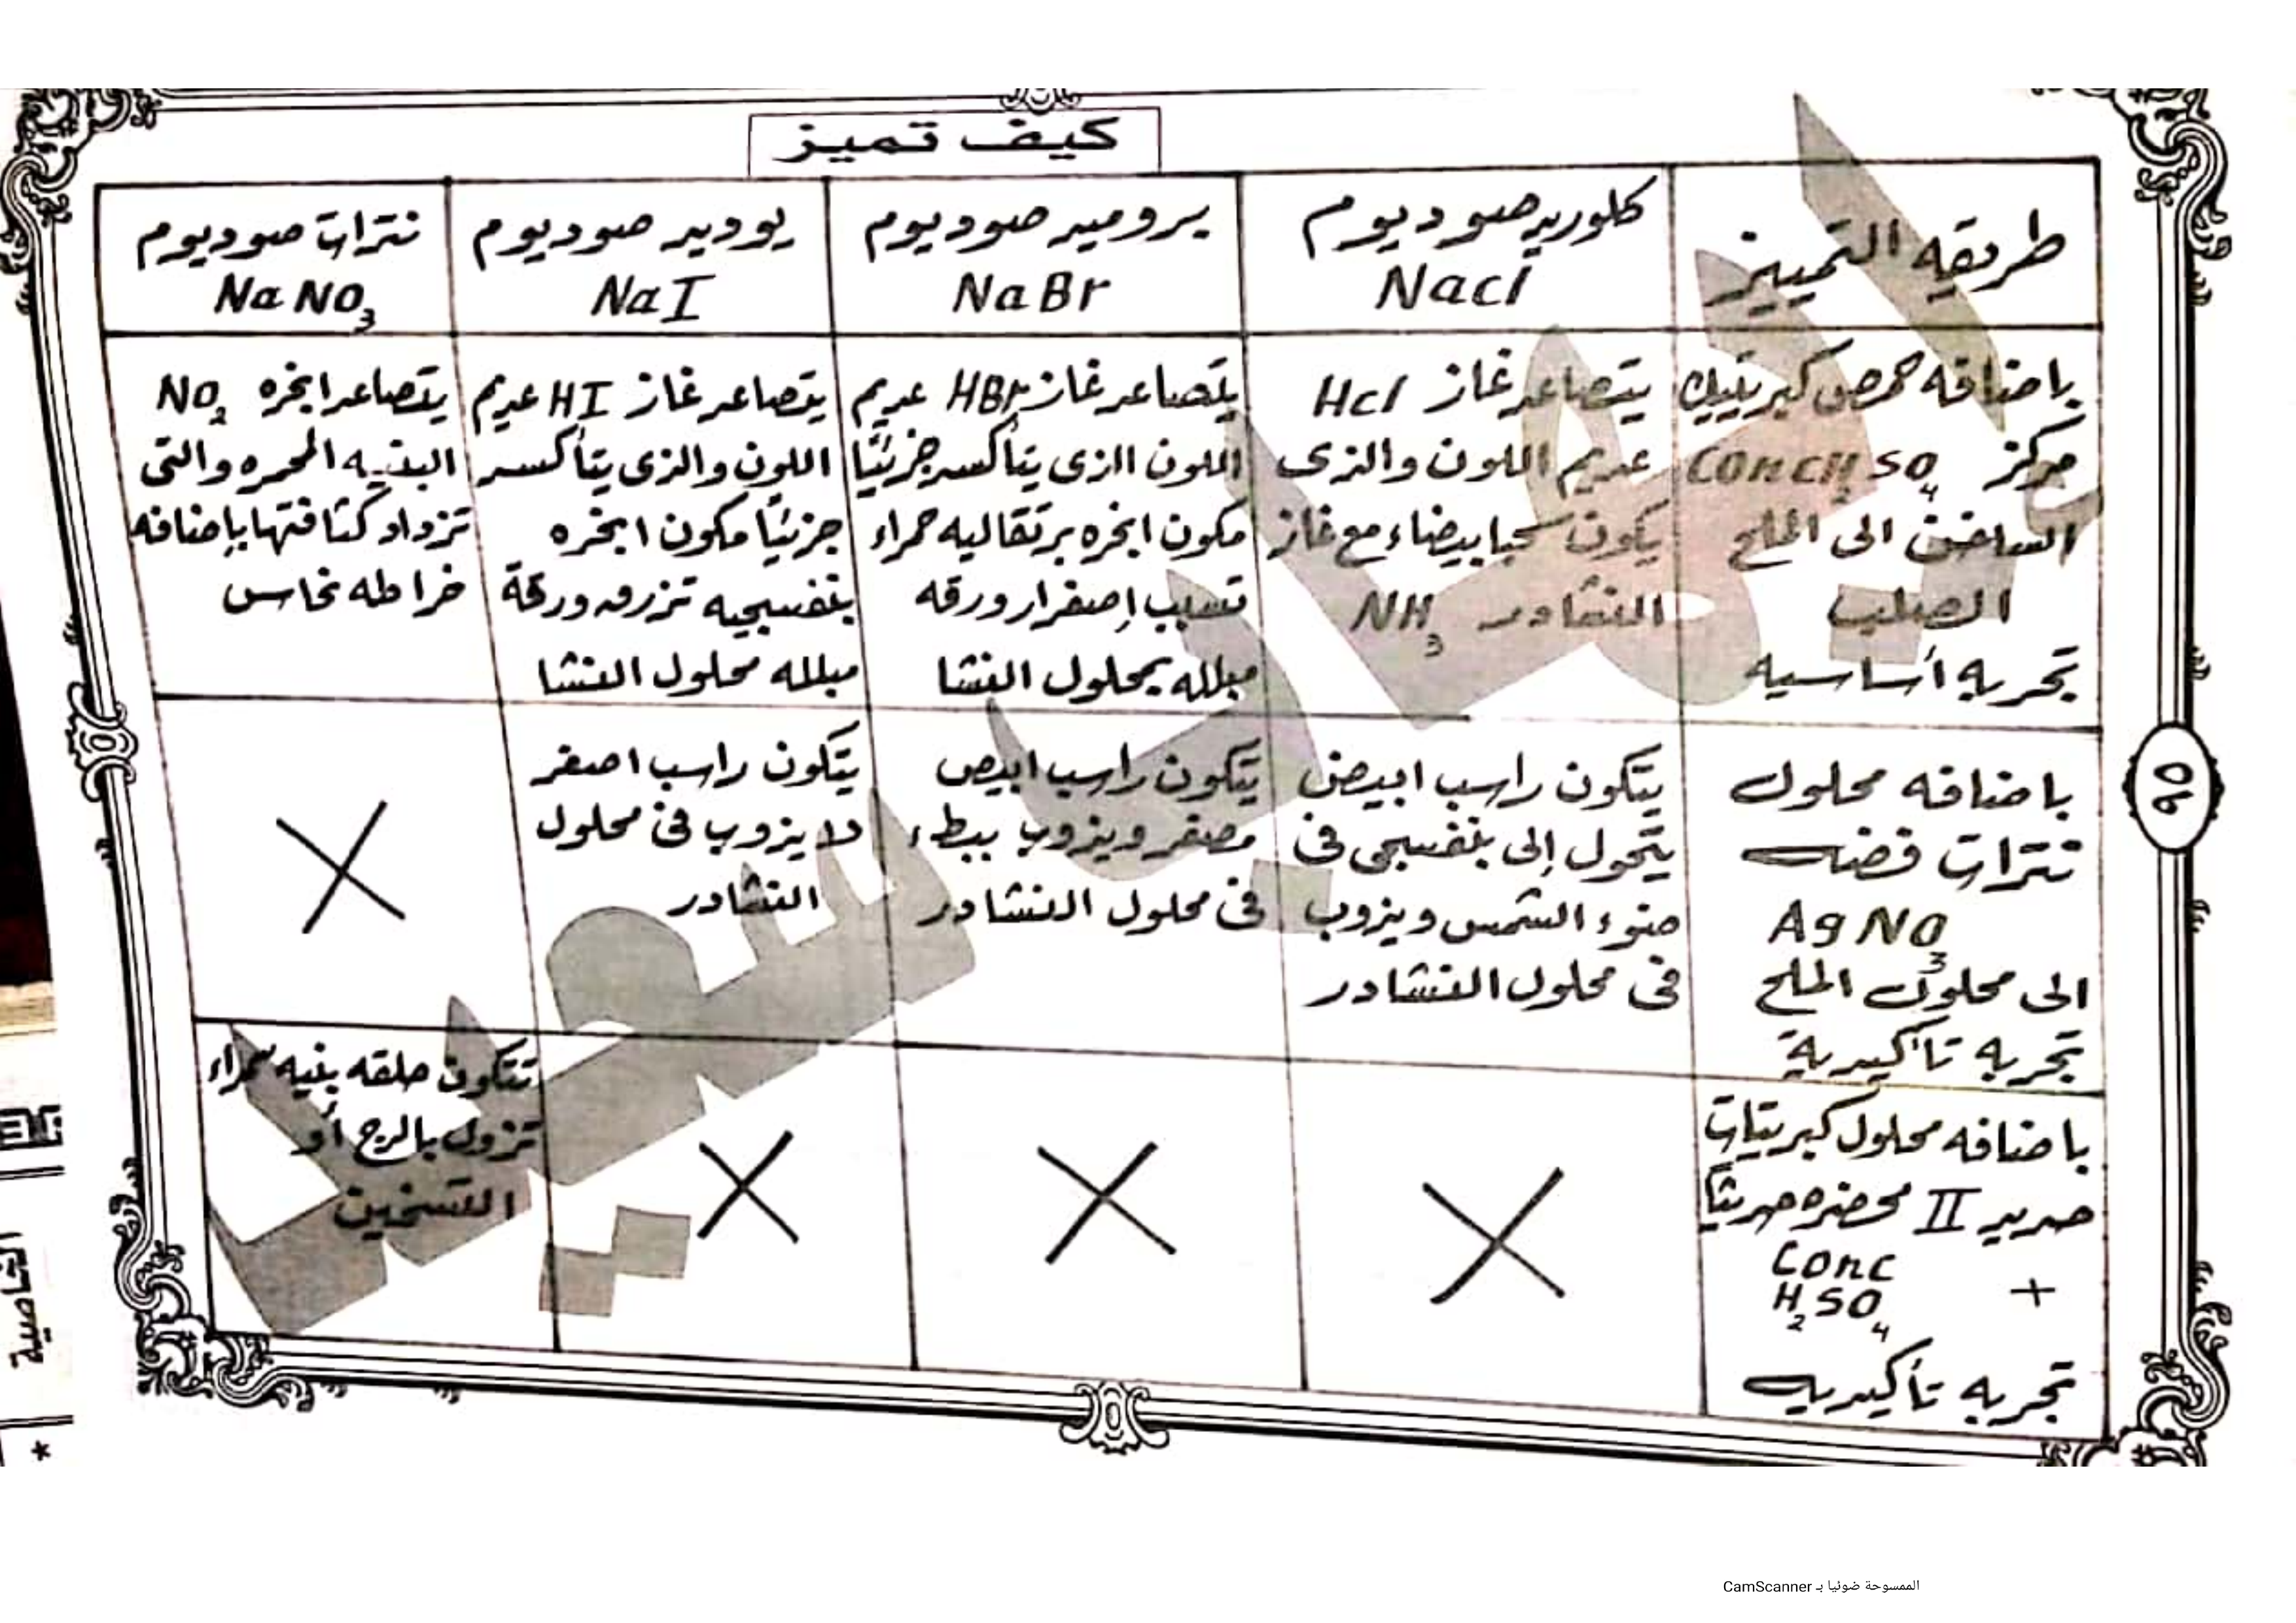 كيف تميز
طريقه التمييز
كلوريد صوديوم
Nacl
بروميد صوديوم
NaBr
يوديد صوديوم
NaI
نترات صوديوم
NaNO3
باضافه حمض كبريتيك
مركز ConcH2SO4
الساخن الى الملح
الصلب
تجربه أساسيه
يتصاعد غاز Hcl
عديم اللون والذى
يكون سحبا بيضاء مع غاز
النشادر NH3
يتصاعد غاز HBr عديم
اللون الذى يتأكسد جزئيا
مكون ابخره برتقاليه حمراء
تسبب إصفرار ورقه
مبلله بمحلول النشا
يتصاعد غاز HI عديم
اللون والذى يتأكسد
جزئياً مكون ابخره
بنفسجيه تزرق ورقة
مبلله محلول النشا
يتصاعد ابخره NO2
البنيه المحره والتى
تزداد كثافتها بإضافه
خراطه نحاس
باضافه محلول
نترات فضه
AgNO3
الى محلول الملح
تجربه تأكيدية
يتكون راسب ابيض
يتحول إلى بنفسجى فى
ضوء الشمس ويذوب
فى محلول النشادر
يتكون راسب ابيض
مصفر ويذوب ببطء
فى محلول النشادر
يتكون راسب اصفر
لا يذوب فى محلول
النشادر
باضافه محلول كبريتات
حديد II محضره حديثاً
+ Conc
H2SO4
تجربه تأكيديه
تتكون حلقه بنيه سمراء
تزول بالرج أو
التسخين
٩٥
الخاصية
*
الممسوحة ضوئيا بـ CamScanner